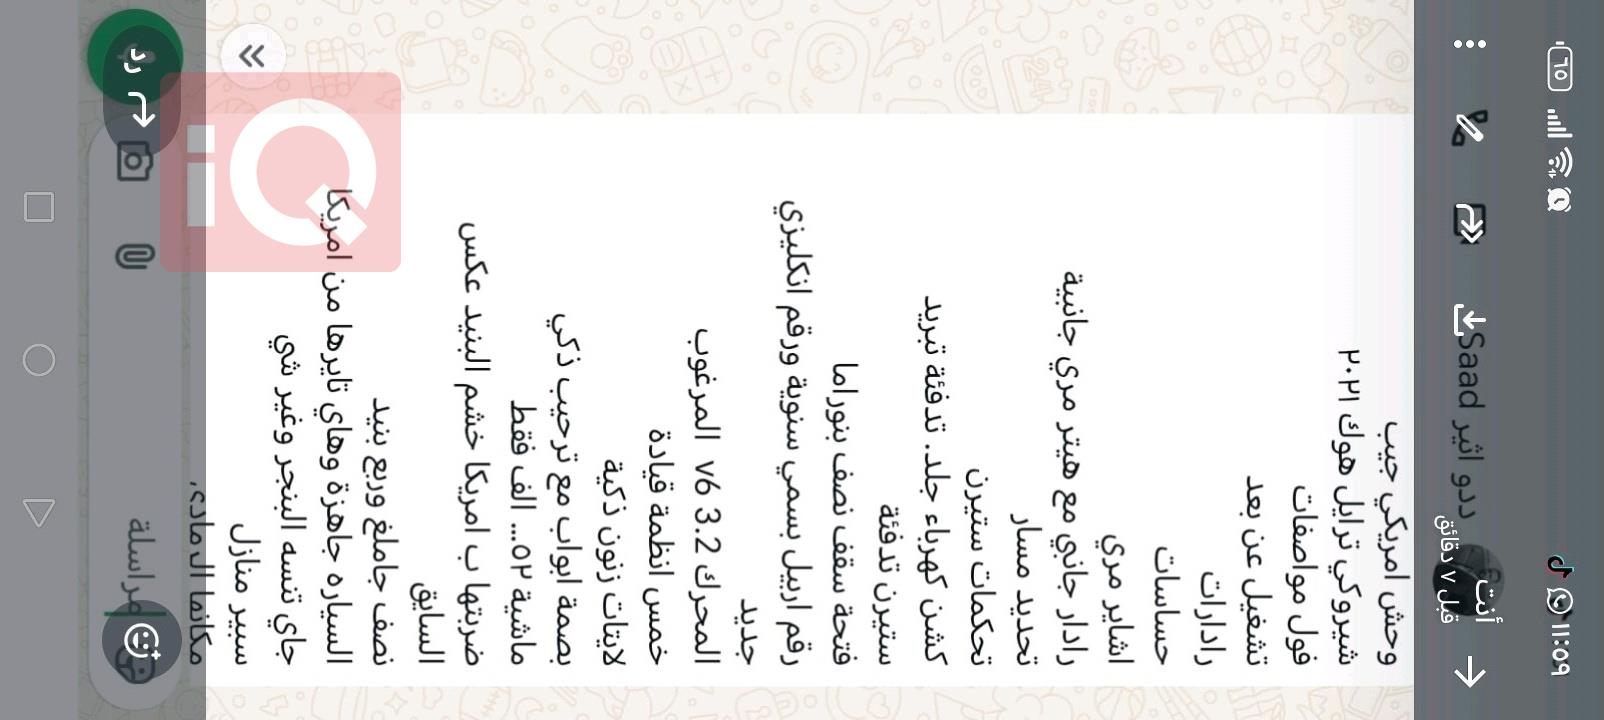 ١١:٥٩
٦٥
أنت
قبل ٧ دقائق
ددو اثير Saad
وحش امريكي جيب
شيروكي ترايل هوك ٢٠٢١
فول مواصفات
تشغيل عن بعد
رادارات
حساسات
اشاير مري
رادار جانبي مع هيتر مري جانبية
تحديد مسار
تحكمات ستيرن
كشن كهرباء جلد. تدفئة تبريد
ستيرن تدفئة
فتحة سقف نصف بنوراما
رقم اربيل بسمي سنوية ورقم انكليزي
جديد
المحرك v6 3.2 المرغوب
خمس انظمة قيادة
لايتات زنون ذكية
بصمة ابواب مع ترحيب ذكي
ماشية ٥٢... الف فقط
ضربتها ب امريكا خشم البنيد عكس
السايق
نصف جاملغ وربع بنيد
السياره جاهزة وهاي تايرها من امريكا
جاي تنسه البنجر وغير شي
سبير منازل
مكانها ال مادي.
مراسلة
iQ